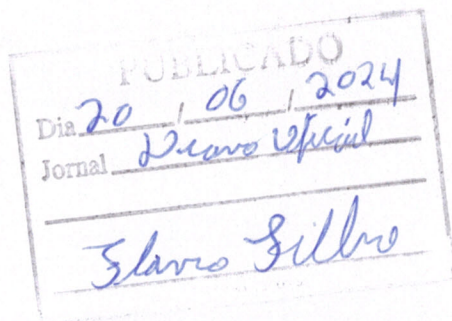 PUBLICADO
Dia 20 / 06 / 2024
Jornal Diário Oficial
Flavio Silho